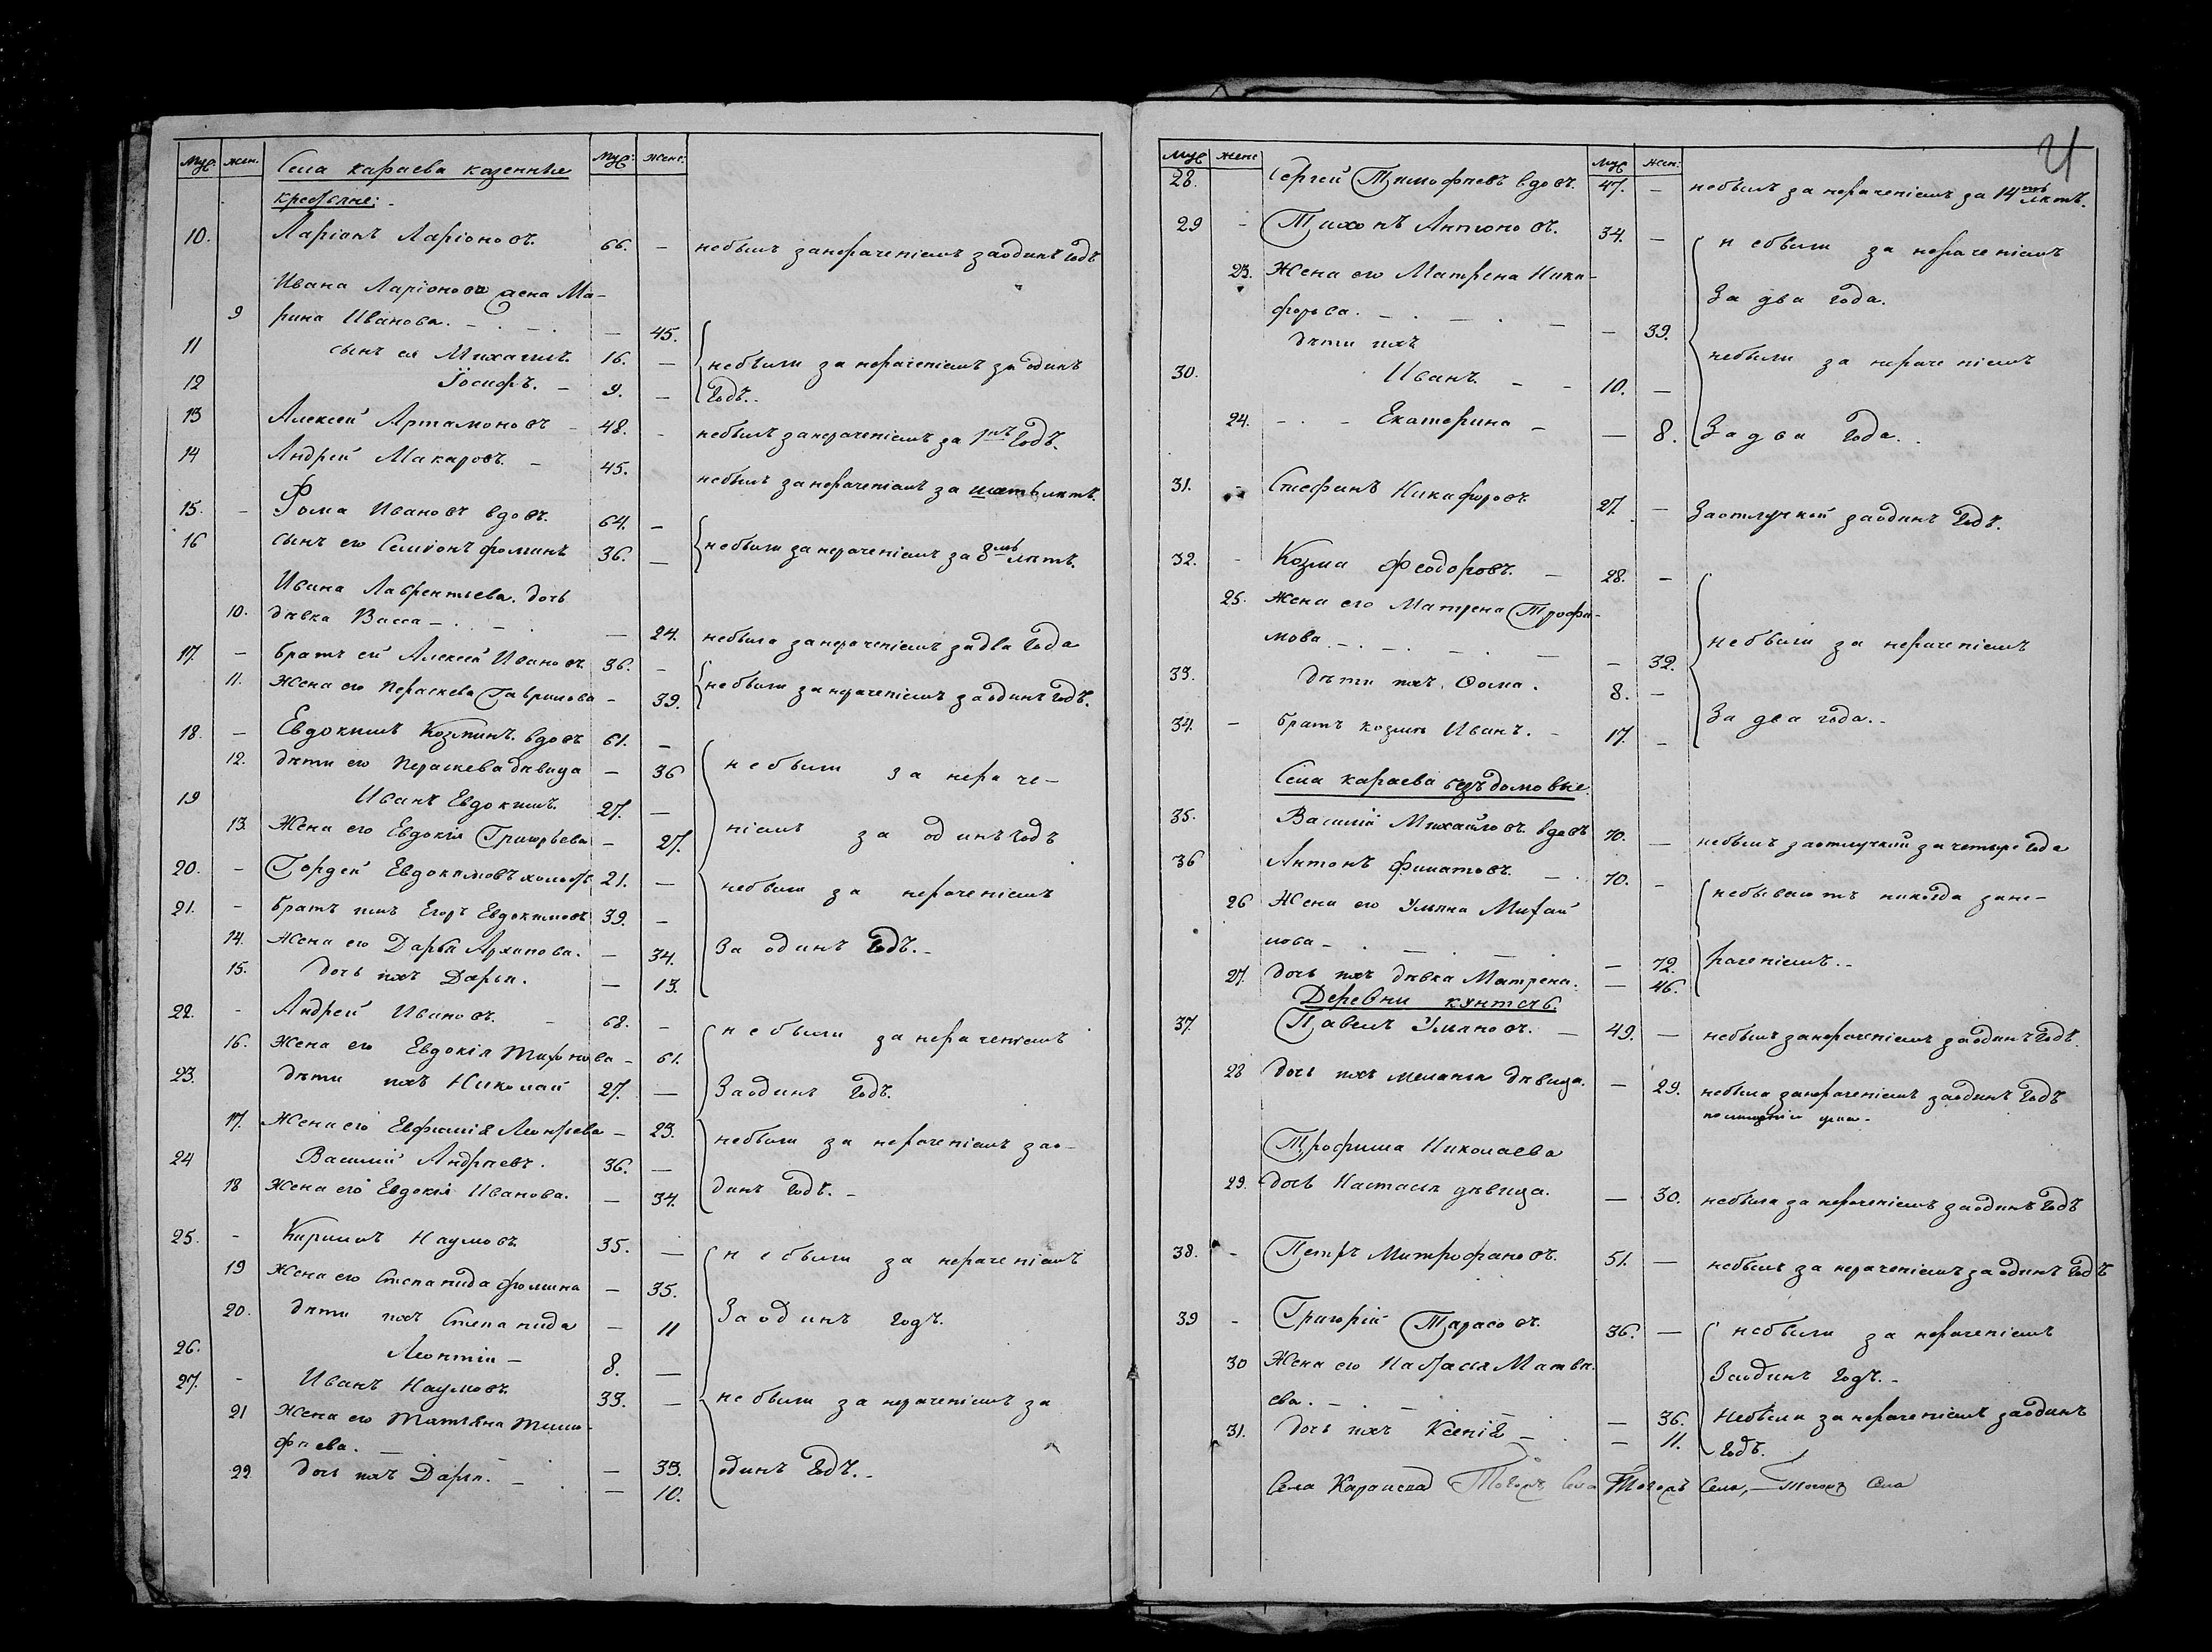 Муж. жен. Села караева казенные Муж: женс:
крестьяне: -
10. Ларіонъ Ларіоновъ. 66. — небылъ занераченіемъ заодинъ годъ
Ивана Ларіонова жена Ма-
9 рина Иванова. — 45.
11 сынъ ея Михаилъ. 16. — небыли за нераченіемъ за одинъ
12 Іосифъ. — 9. — годъ.-
13 Алексей Артамоновъ - 48. - небылъ занераченіемъ за 1нъ годъ.
14 Андрей Макаровъ. - 45. небылъ занераченіемъ за шатьлѣтъ.
15. - Фома Ивановъ вдовъ. 64. —
16 сынъ его Симіонъ фоминъ 36. — небыли за нераченіемъ за 8мь лѣтъ.
Ивана Лаврентьева. дочь
10. дѣвка Васса — — 24. небыла занераченіемъ задва года
17. — братъ ей Алексей Ивановъ 36. -
11. Жена его Пераскева Гаврилова - 39. небыли занераченіемъ заодинъ годъ.
18. — Евдокимъ Козминъ. вдовъ 61. —
12. дѣти его Пераскева дѣвица — 36 небыли за нераче-
19 Иванъ Евдокимъ. 27. —
13. Жена его Евдокія Григорьева — 27. ніемъ за одинъ годъ
20. - Гордей Евдокимовъ холостъ 21. — небыли за нераченіемъ
21. - братъ имъ Егоръ Евдокимовъ 39. —
14. Жена его Дарья Архипова. — 34. За одинъ годъ.-
15. дочь ихъ Дарья. — 13.
22. - Андрей Ивановъ. - 68. - небыли за нераченіемъ
16. Жена его Евдокія Тихонова - 61.
23. дѣти ихъ Николай 27. — Заодинъ годъ.
17. Жена его Евфимія Леонтьева - 23. небыли за нераченіемъ зао-
24 Василій Андреевъ. 36. —
18 Жена его Евдокія Иванова. — 34. динъ годъ. -
25. - Кирилъ Наумовъ 35. — небыли за нераченіемъ
19 Жена его Степанида фомина — 35.
20. дѣти ихъ Степанида — 11 Заодинъ годъ.
26. Леонтій - 8. —
27. - Иванъ Наумовъ 33. — небыли за нераченіемъ за
21 Жена его Татьяна Тимо-
фѣева. — 33. одинъ годъ.-
22 дочь ихъ Дарья. — 10.
Муж женс Муж Жен: 21
28. Сергей Тимофѣевъ вдовъ. 47. — небылъ за нераченіемъ за 14ть лѣтъ.
29 - Тихонъ Антоновъ. 34. — небыли за нераченіемъ
23. Жена его Матрена Ники- За два года.
форова. — 39.
дѣти ихъ небыли за нераченіемъ
30. Иванъ - - 10. —
24. - Екатерина — — 8. За два года.
31. - Стефанъ Никифоровъ 27. — Заотлучкой заодинъ годъ.
32. - Козма Феодоровъ. — 28. —
25. Жена его Матрена Трофи-
мова — 32. небыли за нераченіемъ
33. дѣти ихъ. Фома. 8. —
34. — братъ козмы Иванъ. - 17. - За два года.-
Села караева бездомовые.
35. Василій Михайловъ вдовъ 70. — небылъ заотлучкой за четыре года
36 Антонъ Филатовъ. — 70. - небываютъ никогда зане-
26 Жена его Ульяна Михай
лова — — 72. раченіемъ.-
27. дочь ихъ дѣвка Матрена. — 46.
Деревни
37. Павелъ Ульяновъ. — 49. — небылъ занераченіемъ заодинъ годъ.
28 дочь ихъ меланья дѣвица. — 29. небыла занераченіемъ заодинъ годъ
Трофима Николаева
29. дочь Настасья дѣвица. — 30. небыла за нераченіемъ заодинъ годъ
38. - Петръ Митрофановъ. 51. — небылъ за нераченіемъ заодинъ годъ
39 - Григорій Тарасовъ. 36. — небыли за нераченіемъ
30 Жена его Настасья Матвѣ- Заодинъ годъ.-
ева. — 36. Небыли за нераченіемъ заодинъ
31. дочь ихъ Ксенія — — 11. годъ.
Села Караиска Тогожъ Села Тогожъ Села, — Тогожъ Села